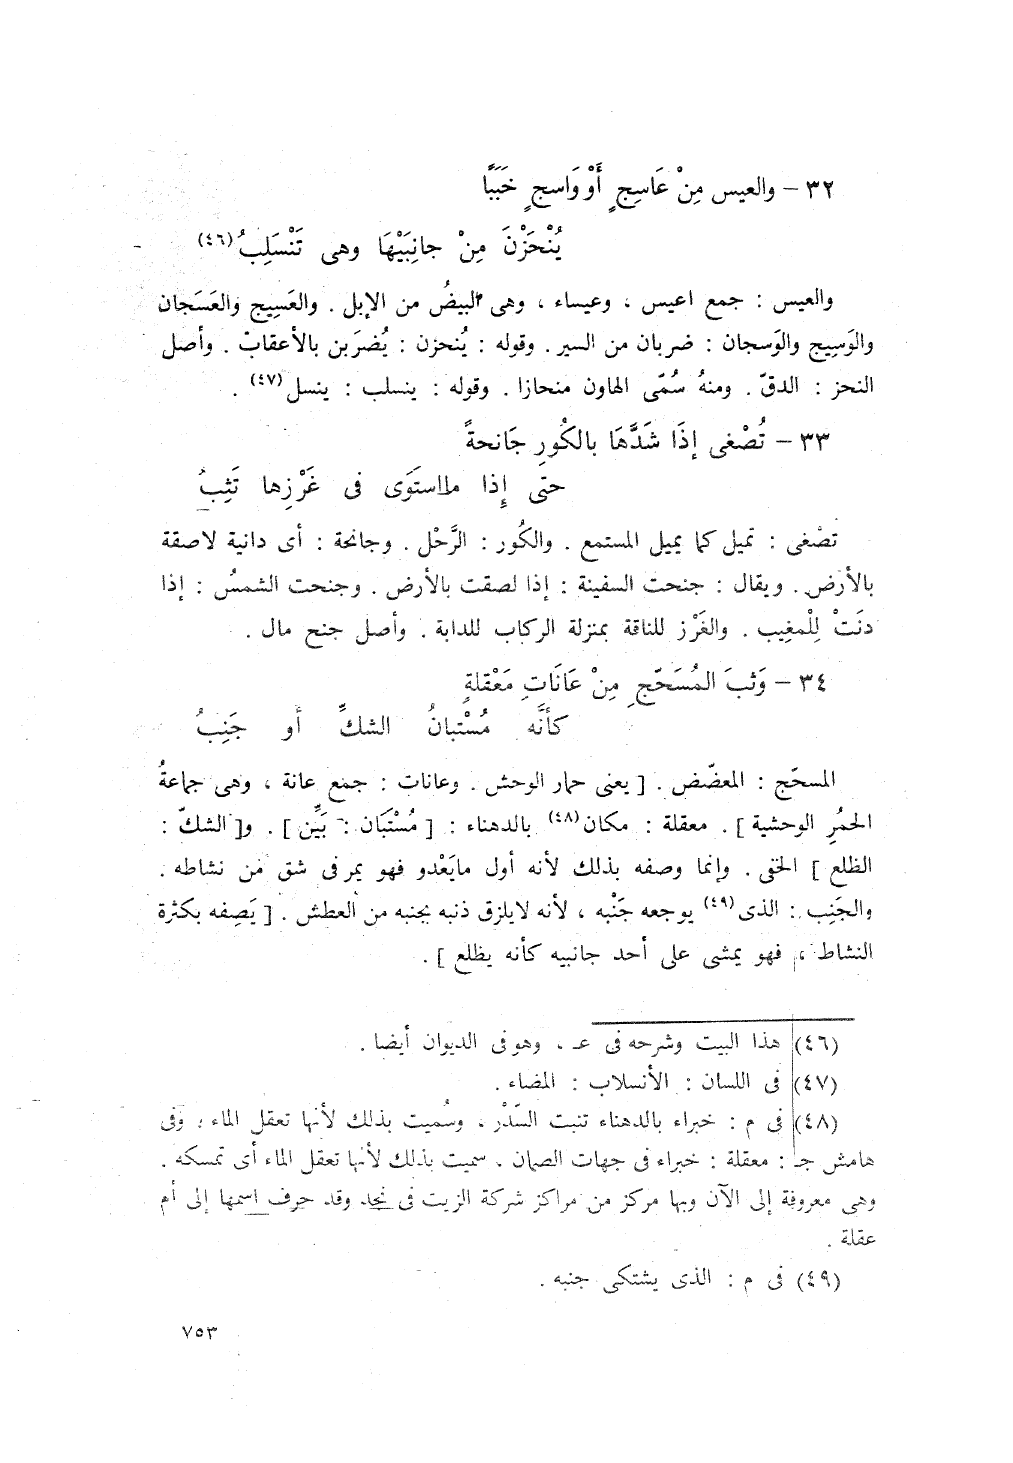 ٣٢ – والعيس مِنْ عَاسِجٍ أَوْ وَاسجٍ خَبَبًا
يُنْحَزْنَ مِنْ جانِبَيْهَا وهى تَنْسَلِبُ(٤٦)
والعيس : جمع اعيس ، وعيساء ، وهى البيضُ من الإبل . والعَسِيج والعَسَجان
والوَسِيج والوَسجان : ضربان من السير . وقوله : يُنحزن : يُضرَبن بالأعقاب . وأصل
النحز : الدقّ . ومنهُ سُمّى الهاون منحازا . وقوله : ينسلب : ينسل(٤٧) .
٣٣ – تُصْغى إذَا شَدَّهَا بالكُورِ جَانحةً
حتّى إِذا ماستَوَى فى غَرْزِها تَثِبُ
تصْغى : تميل كما يميل المستمع . والكُور : الرَّحْل . وجانحة : أى دانية لاصقة
بالأرض . ويقال : جنحت السفينة : إذا لصقت بالأرض . وجنحت الشمسُ : إذا
دنَتْ لِلْمغِيب . والغَرْز للناقة بمنزلة الركاب للدابة . وأصل جنح مال .
٣٤ – وَثبَ المُسَحّجِ مِنْ عَانَاتِ مَعْقلةٍ
كأنَّه مُسْتبانُ الشكِّ أو جَنِبُ
المسحّج : المعضّض . [ يعنى حمار الوحش . وعانات : جمع عانة ، وهى جماعةُ
الحمُرِ الوحشية ] . معقلة : مكان(٤٨) بالدهناء : [ مُسْتَبَان : بَيِّن ] . و[ الشكّ :
الظلع ] الخفى . وإنما وصفه بذلك لأنه أول مايَعْدو فهو يمر فى شق من نشاطه .
والجَنِب : الذى(٤٩) يوجعه جَنْبه ، لأنه لايلزق ذنبه بجنبه من العطش . [ يَصِفه بكثرة
النشاط ، فهو يمشى على أحد جانبيه كأنه يظلع ] .
(٤٦) هذا البيت وشرحه فى عـ ، وهو فى الديوان أيضا .
(٤٧) فى اللسان : الأنسلاب : المضاء .
(٤٨) فى م : خبراء بالدهناء تنبت السّدْر ، وسُميت بذلك لأنها تعقل الماء ؛ وفى
هامش جـ : معقلة : خبراء فى جهات الصمان . سميت بذلك لأنها تعقل الماء أى تمسكه .
وهى معروفة إلى الآن وبها مركز من مراكز شركة الزيت فى نجد وقد حرف اسمها إلى أم
عقلة .
(٤٩) فى م : الذى يشتكى جنبه .
٧٥٣